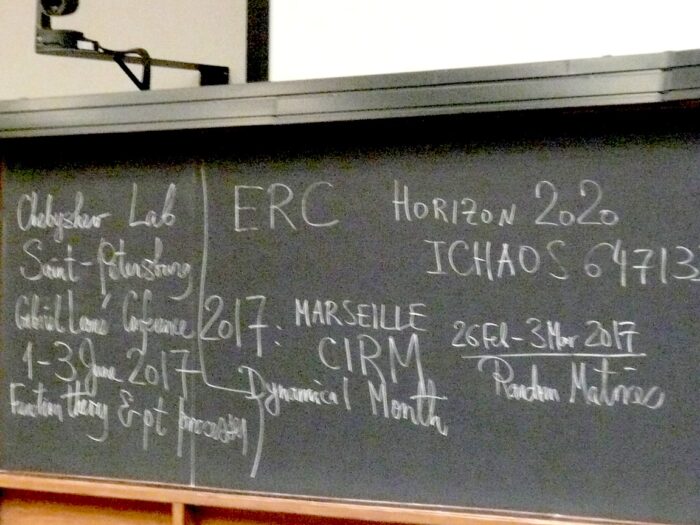 Chebyshev Lab
Saint-Petersburg
Gabriel Lamé Conference
1-3 June 2017
Function theory & pt processes
ERC HORIZON 2020
ICHAOS 64713
2017: MARSEILLE
CIRM
Dynamical Month
26 Feb - 3 Mar 2017
Random Matrices